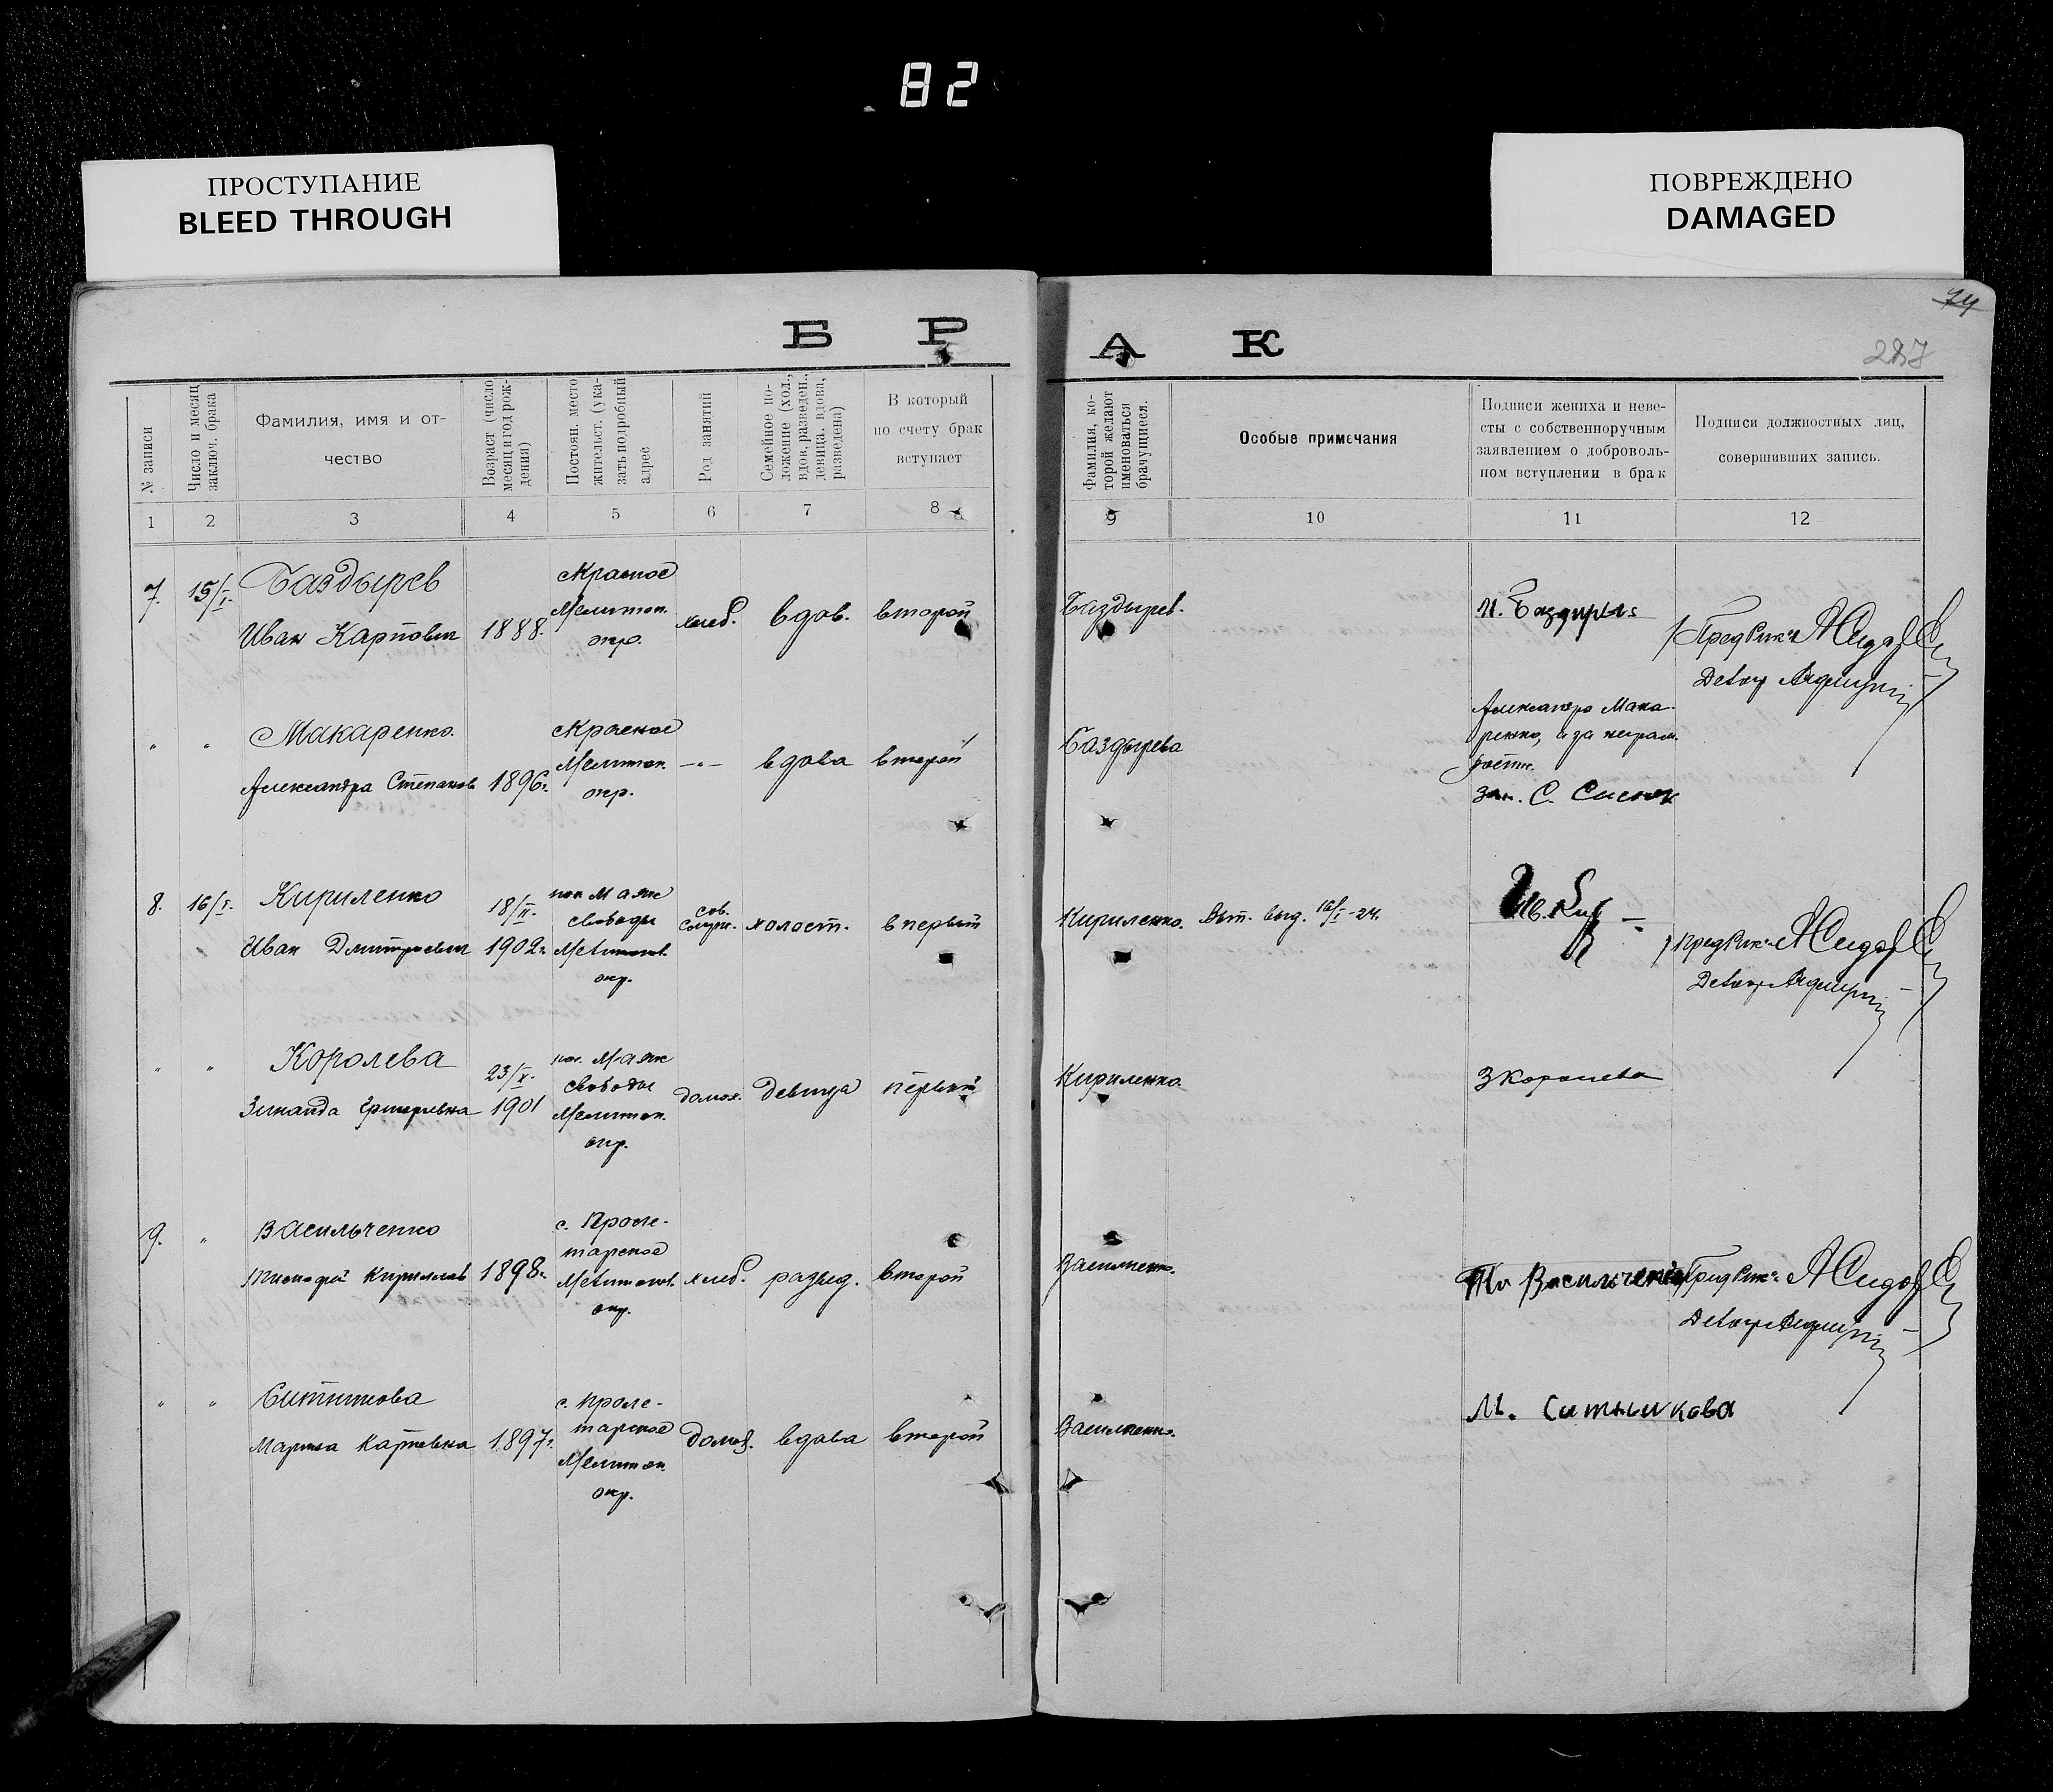 82
ПРОСТУПАНИЕ
BLEED THROUGH
ПОВРЕЖДЕНО
DAMAGED
74
287
Б Р А К
№ записи
Число и месяц
заключ. брака
Фамилия, имя и от-
чество
Возраст (число
месяц и год рож-
дения)
Постоян. место
жительст. (ука-
зать подробный
адрес
Род занятий
Семейное по-
ложение (хол.,
вдов. разведен.,
девица, вдова,
разведена)
В который
по счету брак
вступает
Фамилия, ко-
торой желают
именоваться
брачущиеся.
Особые примечания
Подписи жениха и неве-
сты с собственноручным
заявлением о доброволь-
ном вступлении в брак
Подписи должностных лиц,
совершивших запись.
1 2 3 4 5 6 7 8 9 10 11 12
7. 15/I. Баздырев
Иван Карпович 1888.
Красное
Мелитоп.
окр.
хлеб. вдов. второй
Баздырев.
И. Баздырев
" " Макаренко.
Александра Степанов 1896г.
Красное
Мелитоп.
окр.
—"— вдова второй
Баздырева
Александра Мака-
ренко, а за неграм.
зап. С.
8. 16/I. Кириленко
Иван Дмитриевич
18/II.
1902г.
пос Маяк
свободы
Мелитоп.
окр.
сов.
служ. холост. в первый
Кириленко. Вып. выд. 16/I-24.
" " Королева
Зинаида Григорьевна
23/X.
1901
пос. Маяк
свободы
Мелитоп.
окр.
домох. девица первый
Кириленко.
З Королева
9. " Васильченко
Тимофей Кириллов 1898г.
с. Проле-
тарское
Мелитоп.
окр.
хлеб. развед. второй
Васильченко.
Васильченко
" " Ситникова
Марина Карповна 1897г.
с. Проле-
тарское
Мелитоп.
окр.
домох. вдова второй
Васильченко.
М. Ситникова